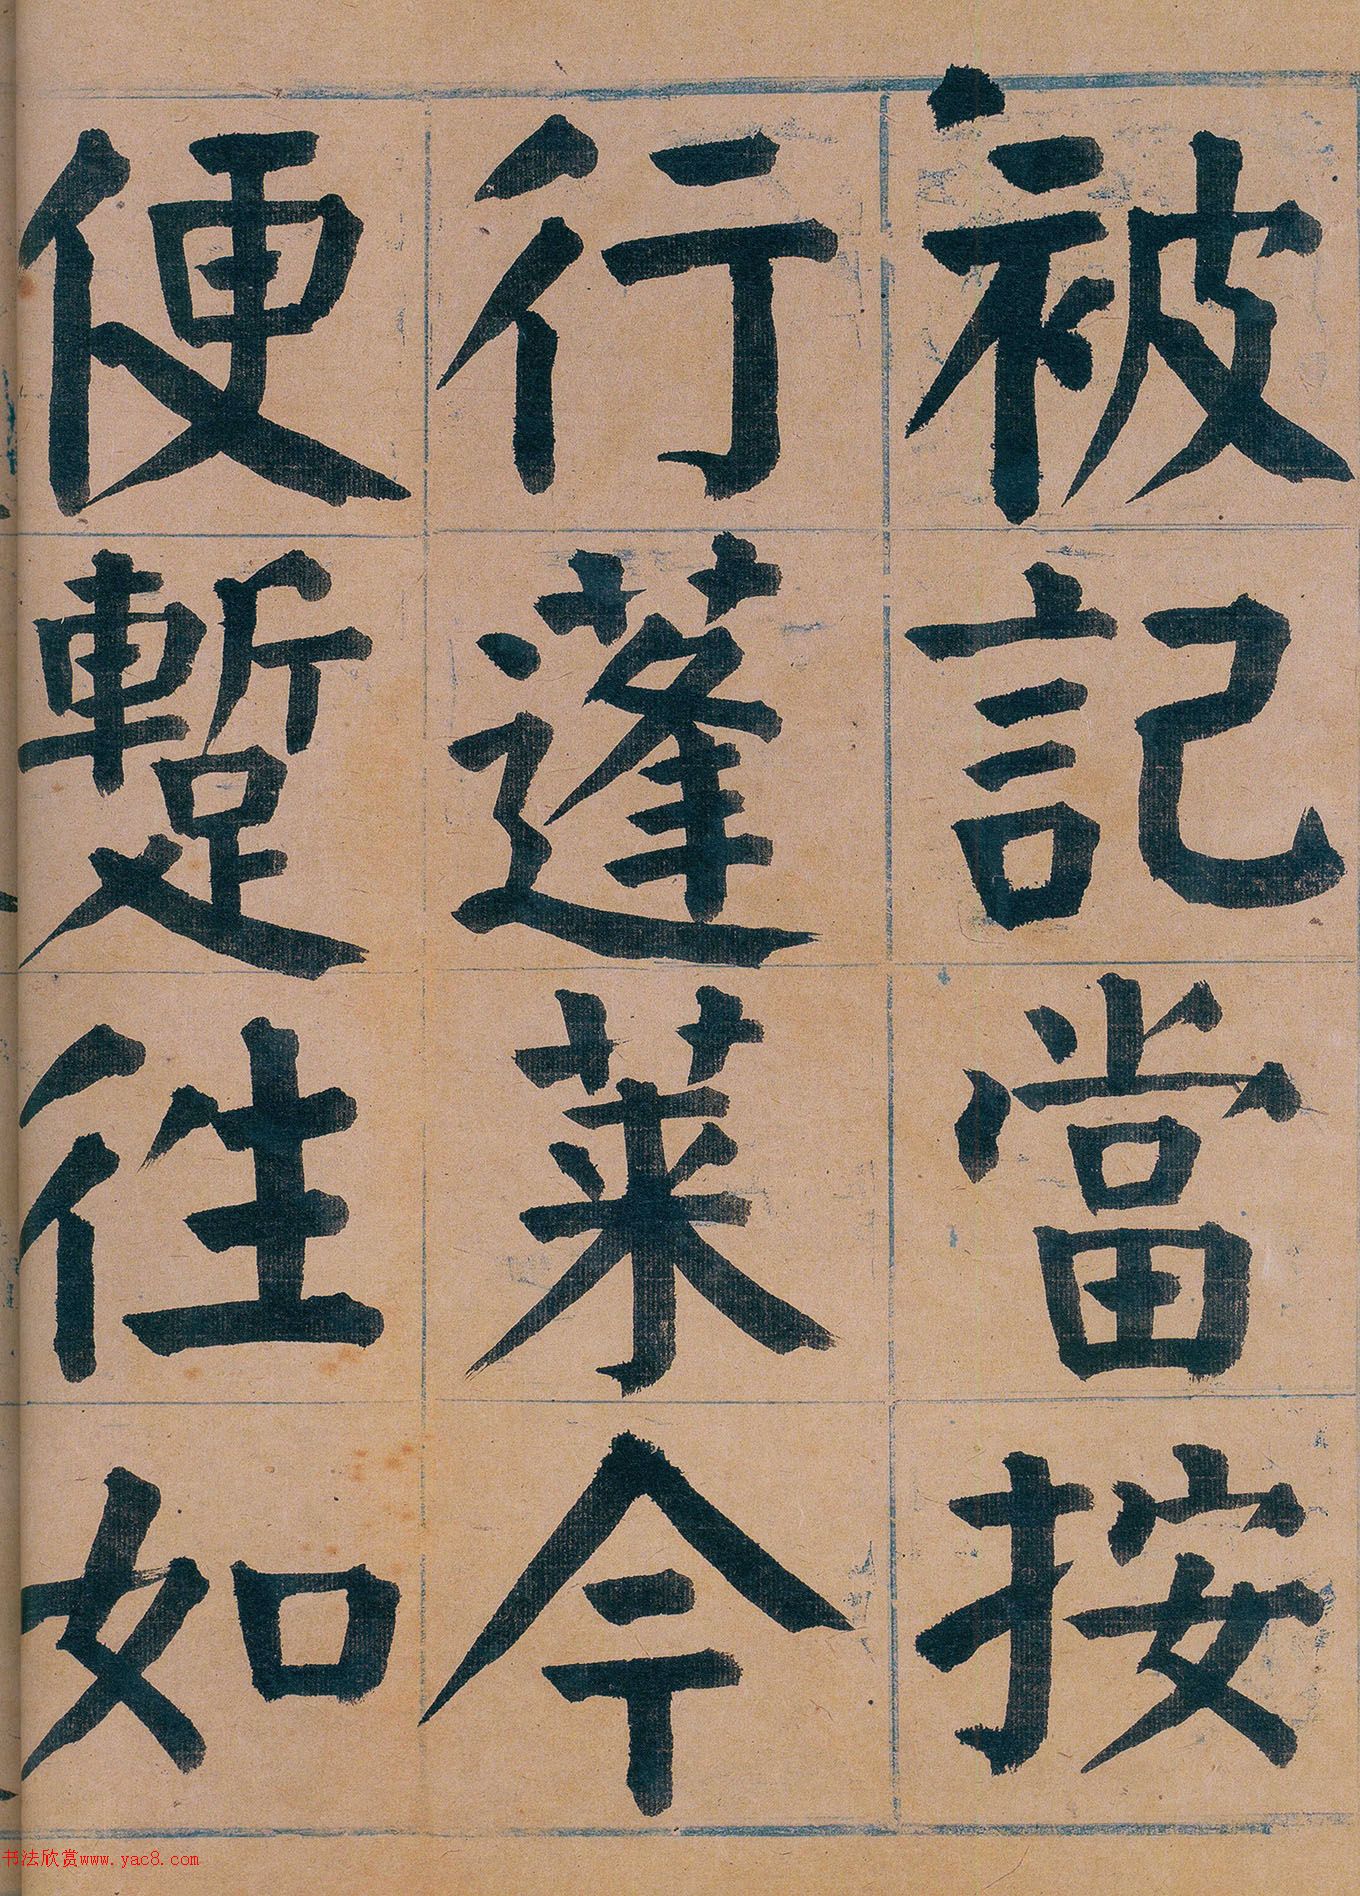 被記當按
行蓬莱今
便蹔徃如
书法欣赏www.yac8.com